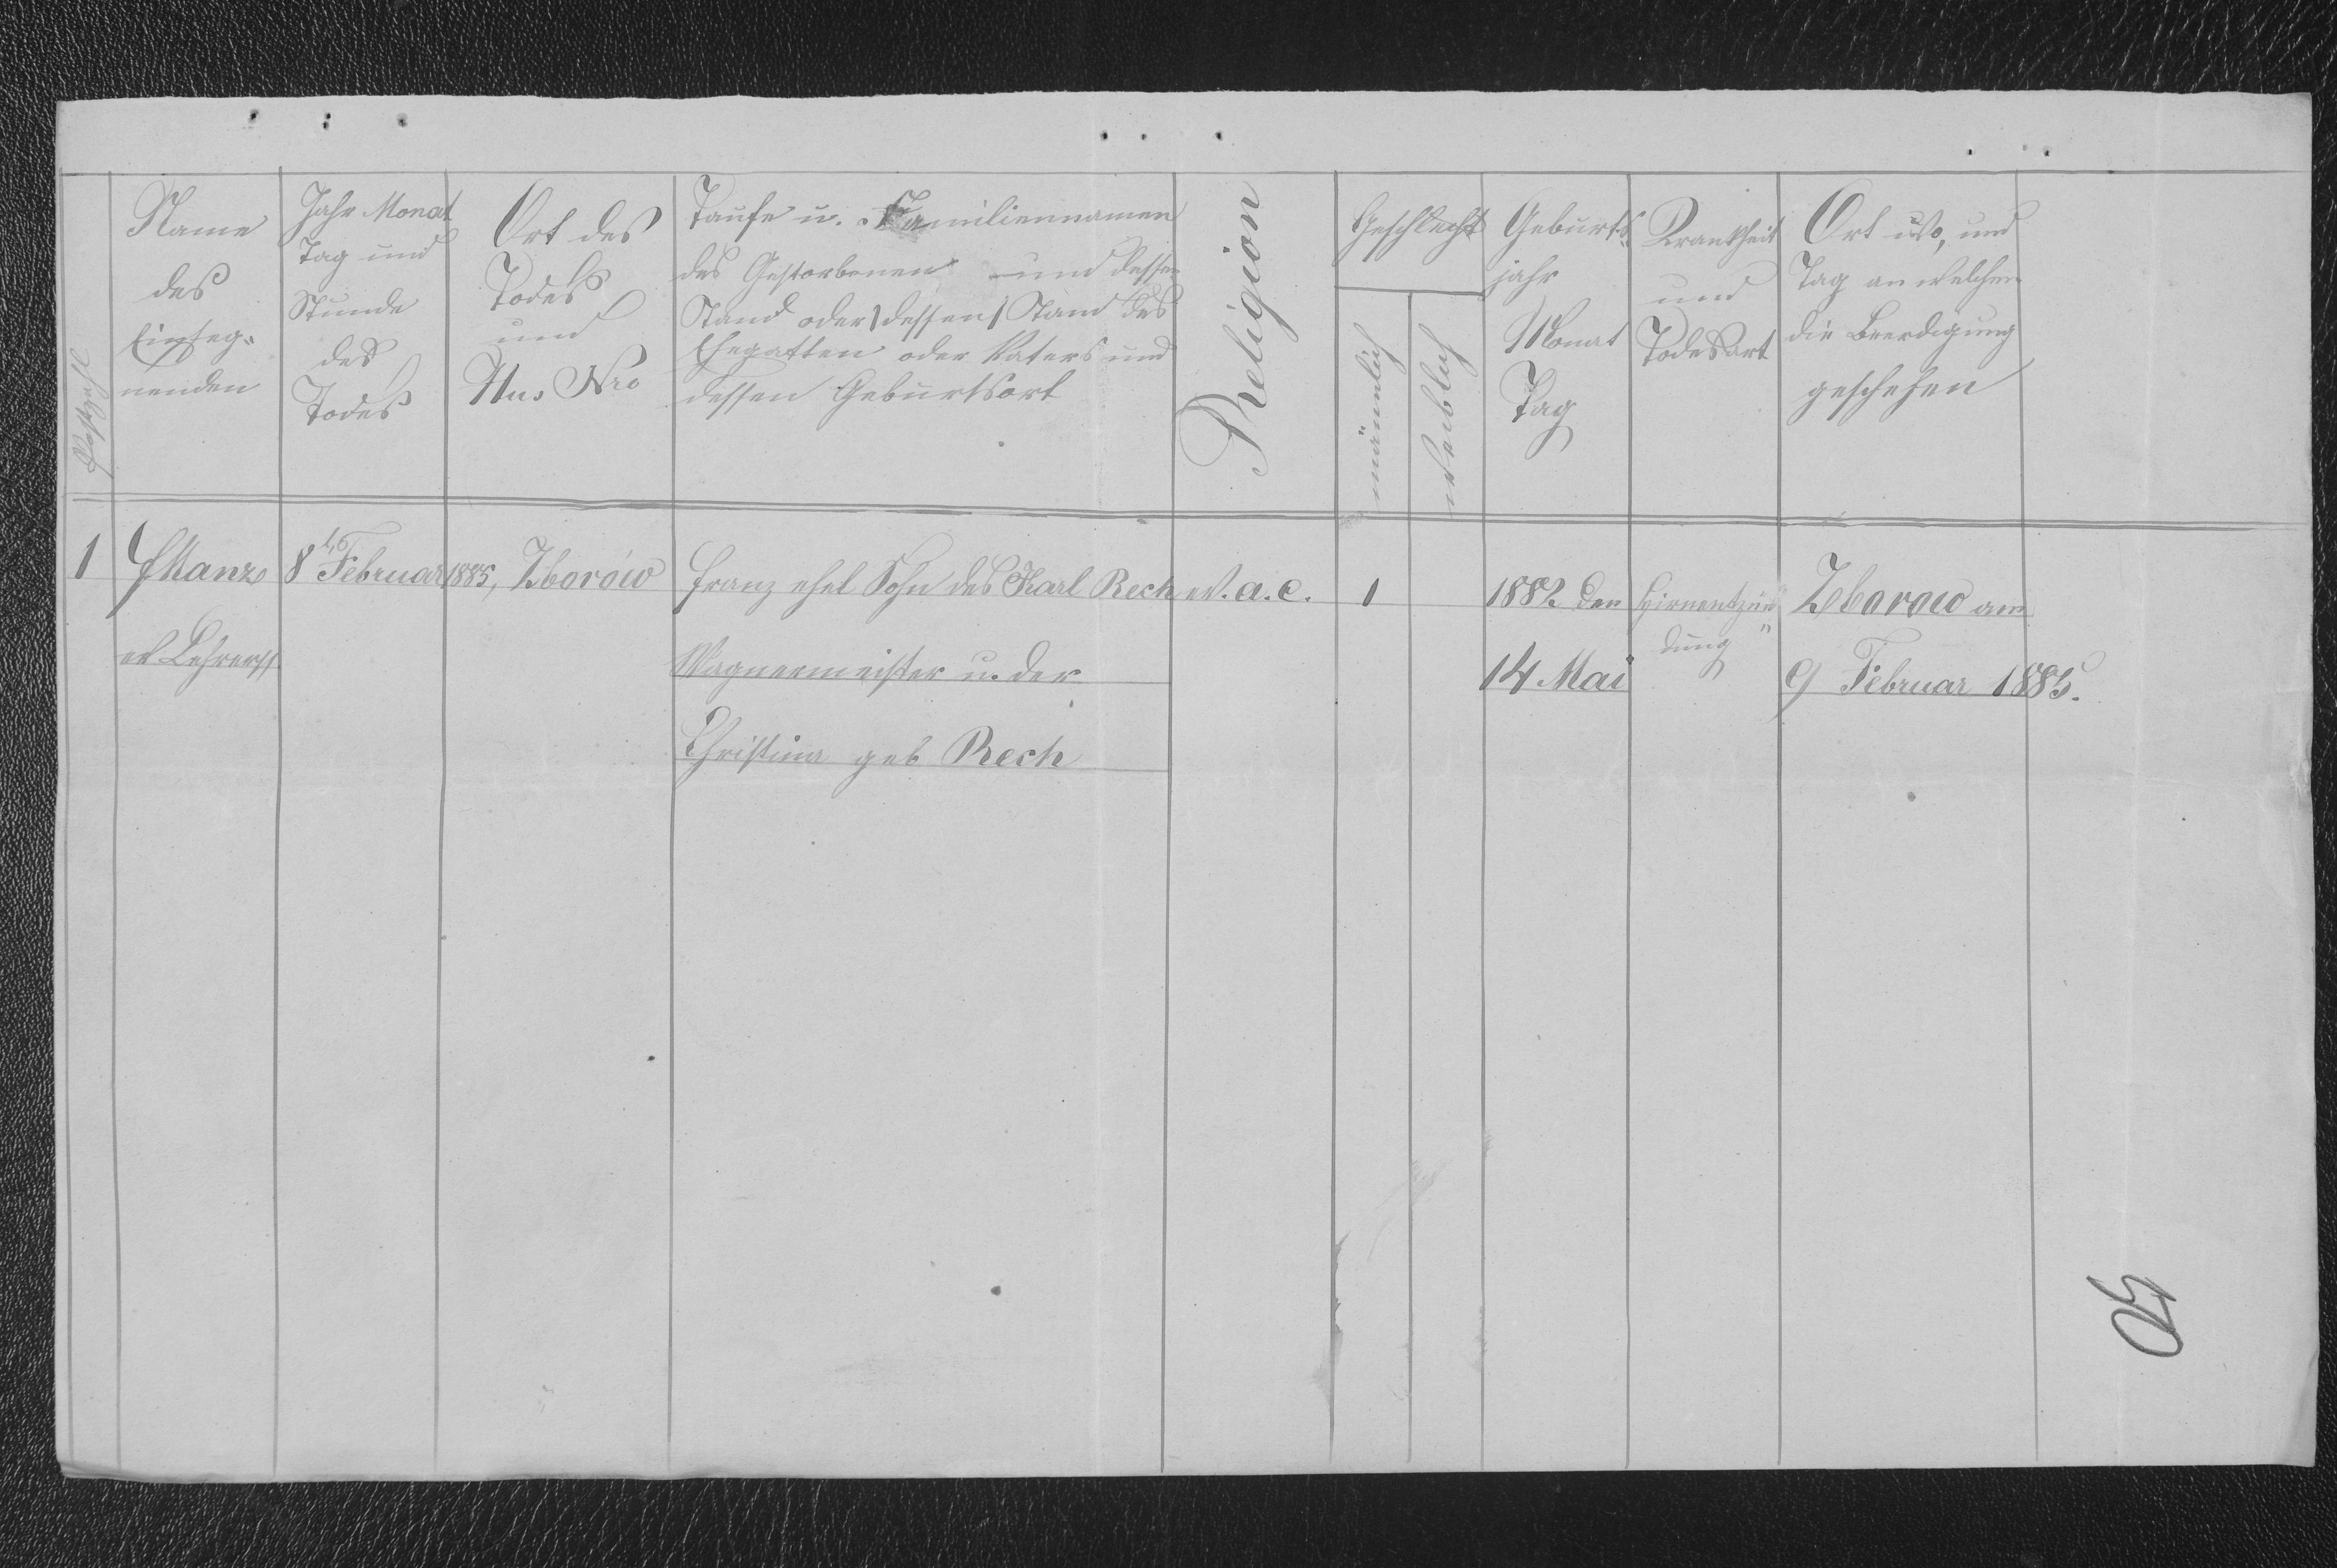 Postzahl
Name
des
Einseg=
nenden
Jahr Monat
Tag und
Stunde
des
Todes
Ort des
Todes
und
Hus Nro
Taufe u. Familiennamen
des Gestorbenen und dessen
Stand oder /dessen/ Stand des
Ehegatten oder Vaters und
dessen Geburtsort
Religion
Geschlecht
männlich
weiblich
Geburts=
jahr
Monat
Tag
Krankheit
und
Todesart
Ort wo, und
Tag an welchen
die Beerdigung
geschehen
1
Manz
ev Lehrer
8 Februar 1885,
Zborów
Franz ehel Sohn des Karl Rech
Wagnermeister u. der
Christina geb Rech
ev. a. c.
1
1882 den
14 Mai
Hirnentzün
dung
Zborow am
9 Februar 1885.